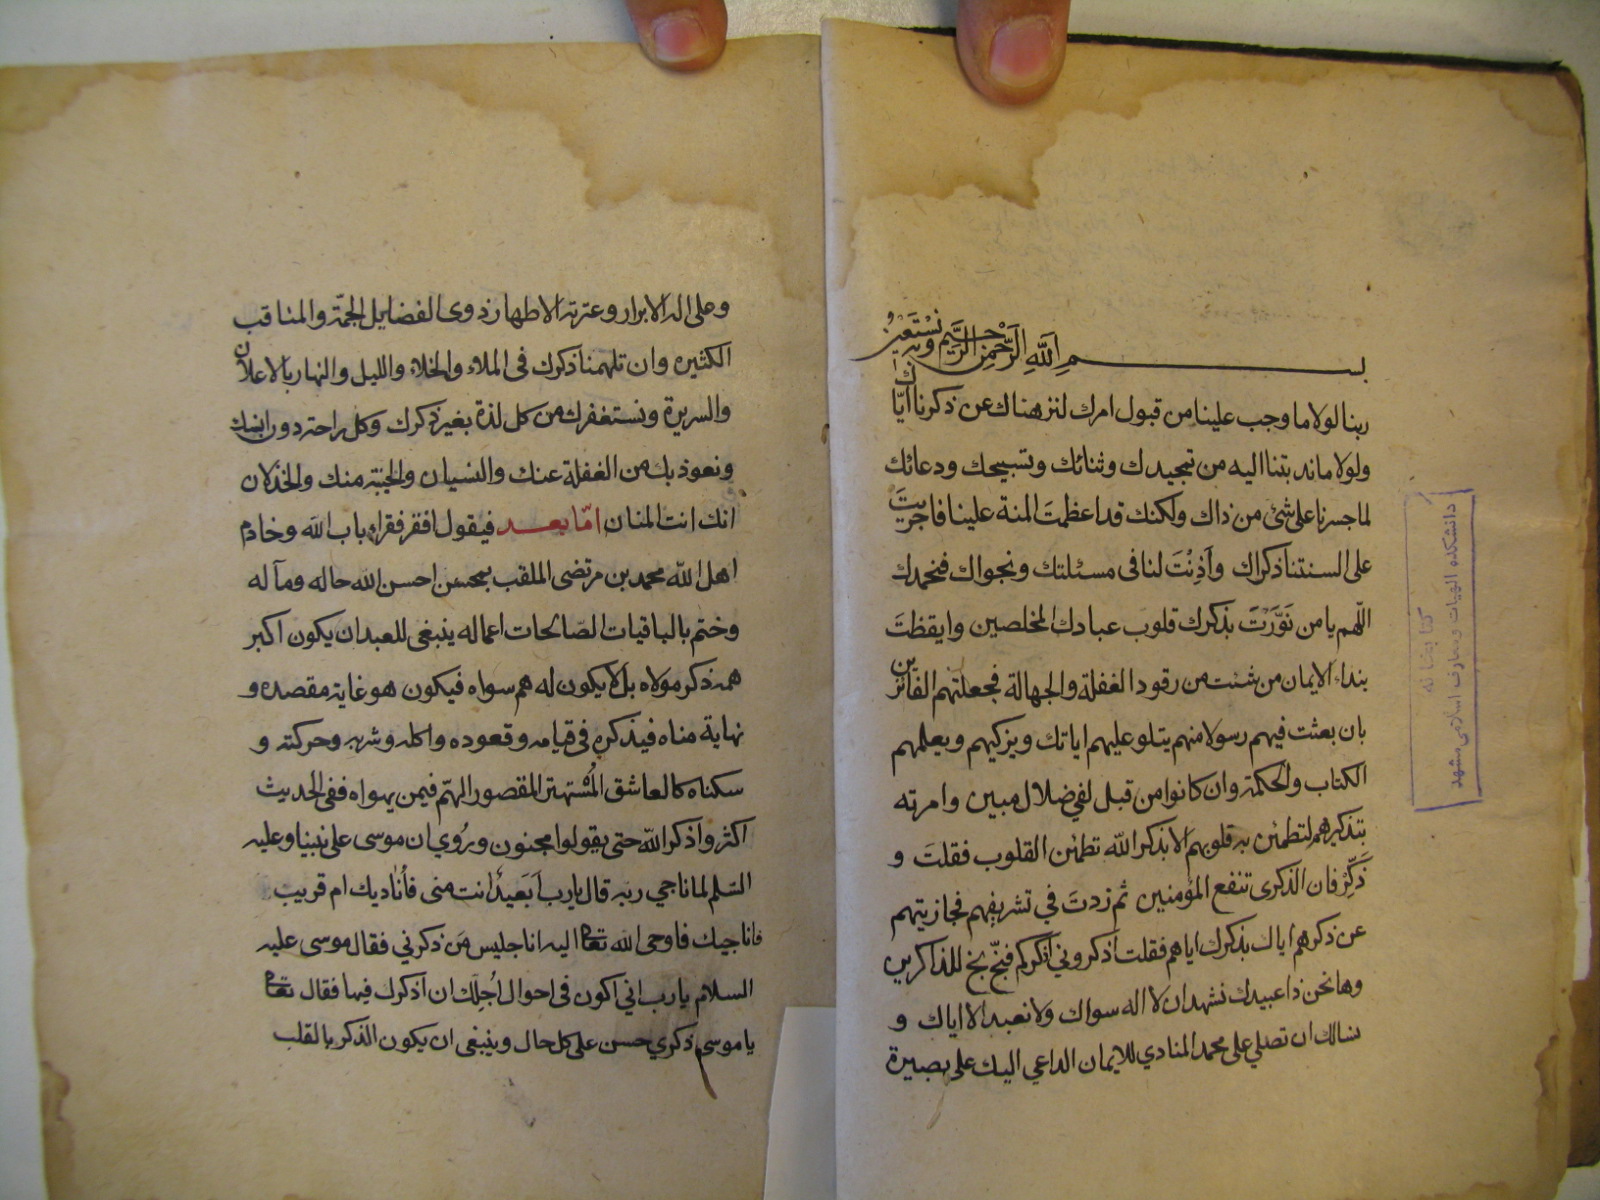 بسم الله الرحمن الرحيم وبه نستعين
ربنا لولا ما وجب علينا من قبول امرك لنزهناك عن ذكرنا اياك
ولولا ما ندبتنا اليه من تمجيدك وثنائك وتسبيحك ودعائك
لما جسرنا على شئ من ذاك ولكنك قد اعظمتَ المنة علينا فاجريتَ
على السنتنا ذكراك وأذِنْتَ لنا فى مسئلتك ونجواك فنحمدك
اللّهم يا من نَوَّرْتَ بذكرك قلوب عبادك المخلصين وايقظتَ
بنداء الايمان من شئت من رقود الغفلة والجهالة فجعلتهم الفائزين
بان بعثت فيهم رسولا منهم يتلو عليهم اياتك ويزكيهم ويعلمهم
الكتاب والحكمة وان كانوا من قبل لفي ضلال مبين وامرته
بتذكيرهم لتطمئن به قلوبهم الا بذكر الله تطمئن القلوب فقلتَ و
ذَكِّرْ فان الذكرى تنفع المؤمنين ثم زدتَ في تشريفهم فجازيتهم
عن ذكرهم اياك بذكرك اياهم فقلت اذكروني اذكركم فبخّ بخ للذاكرين
وها نحن ذا عبيدك نشهد ان لا اله سواك ولا نعبد الا اياك و
نسالك ان تصلي على محمد المنادي للايمان الداعي اليك على بصيرة
دانشكده الهيات ومعارف اسلامى مشهد
كتابخانه
وعلى اله الابرار وعترته الاطهار ذوى الفضايل الجمّة والمناقب
الكثيره وان تلهمنا ذكرك فى الملاء والخلاء والليل والنهار بالاعلان
والسريرة ونستغفرك من كل لذة بغير ذكرك وكل راحة دون انسك
ونعوذ بك من الغفلة عنك والنسيان والخيبة منك والخذلان
انك انت المنان امّا بعد فيقول افقر فقراء باب الله وخادم
اهل الله محمد بن مرتضى الملقب بمحسن احسن الله حاله ومآله
وختم بالباقيات الصّالحات اعماله ينبغى للعبد ان يكون اكبر
همه ذكر مولاه بل لا يكون له هم سواه فيكون هو غاية مقصده و
نهاية مناه فيذكره فى قيامه وقعوده واكله وشربه وحركته و
سكناه كالعاشق المُسْتهتر المقصور الهمّ فيمن يهواه ففى الحديث
اكثروا ذكر الله حتى يقولوا مجنون ورُوي ان موسى على نبينا وعليه
السّلم لما ناجي ربه قال يارب أبَعيدٌ انت منى فأناديك ام قريب
فاناجيك فاوحى الله تعالى اليه انا جليس مَن ذكرني فقال موسى عليه
السلام يارب اني اكون فى احوال اُجِلّك ان اذكرك فيها فقال تعالى
يا موسى ذكري حسن على كل حال وينبغى ان يكون الذكر بالقلب